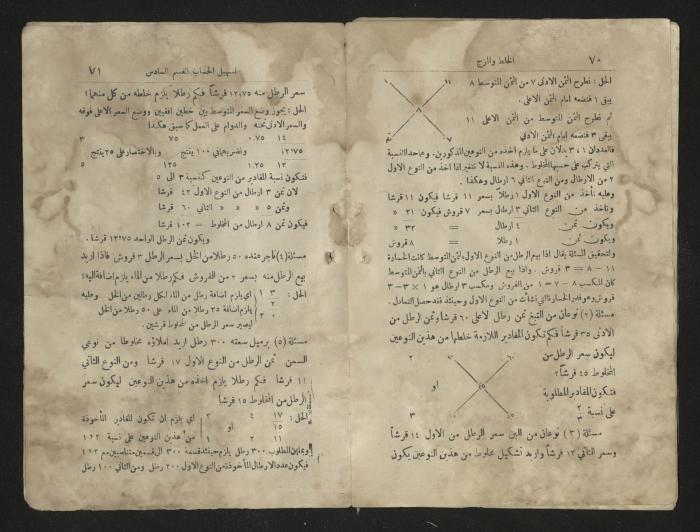 ٧٠ الخلط والمزج
الحل : نطرح الثمن الادنى ٧ من الثمن المتوسط ٨
يبقى ١ فنضعه امام الثمن الاعلى .
ثم نطرح الثمن المتوسط من الثمن الاعلى ١١
يبقى ٣ فنضعه امام الثمن الادنى
١١
٨
٧
فالعددان ١ ، ٣ يدلان على ما يلزم اخذه من النوعين المذكورين . وهما حد النسبة
التي يتركب على حسبها المخلوط . وهذه النسبة لا تتغير اذا اخذ من النوع الاول
٢ من الارطال ومن النوع الثاني ٦ ارطال وهكذا .
وعليه نأخذ من النوع الاول ١ رطلاً بسعر ١١ قرشا فيكون ١١ قرشا
ونأخذ من النوع الثاني ٣ ارطال بسعر ٧ قروش فيكون ٢١ »
ويكون ثمن ٤ ارطال = ٣٢ »
ويكون ثمن ١ رطلا = ٨ قروش
ولتحقيق المسئلة يقال اذا بيع الرطل من النوع الاول بالثمن المتوسط كانت الخسارة
١١ – ٨ = ٣ قروش . واذا بيع الرطل من النوع الثاني بالثمن المتوسط
كان المكسب ٨ – ٧ = ١ من القروش ومكسب ٣ ارطال هو ١ × ٣ = ٣
قروش وهو قدر الخسارة التي نشأت من النوع الاول وحينئذ فقد حصل التعادل .
مسئلة (٢) نوعان من التبغ ثمن رطل الاعلى ٦٠ قرشا وثمن الرطل من
الادنى ٣٥ قرشا فكم تكون المقادير اللازمة خلطها من هذين النوعين
ليكون سعر الرطل من
المخلوط ٤٥ قرشا ؟
فتكون المقادير المطلوبة
على نسبة ٢
٣
او
٢
٣
٤٥
مسئلة (٣) نوعان من البن سعر الرطل من الاول ١٤ قرشا
وسعر الثاني ١٢ قرشا واريد تشكيل مخلوط من هذين النوعين يكون
تسهيل الحساب القسم السادس ٧١
سعر الرطل منه ١٢٫٧٥ قرشا فكم رطلا يلزم خلطه من كل منهما ؟
الحل : يجوز وضع السعر المتوسط بين خطين افقيين ووضع السعر الاعلى فوقه
والسعر الادنى تحته والدوام على العمل كما سبق هكذا
١٤ ٠٫٧٥ ٧٥ ٣
١٢٫٧٥ وبضربهما في ١٠٠ ينتج وبالاختصار على ٢٥ ينتج
١٢ ١٫٢٥ ١٢٥ ٥
فتكون نسبة المقادير من النوعين كنسبة ٣ الى ٥
لان ثمن ٣ ارطال من النوع الاول ٤٢ قرشا
وثمن ٥ » » » الثاني ٦٠ قرشا
فيكون ثمن ٨ ارطال من المخلوط = ١٠٢ قرشا
ويكون ثمن الرطل الواحد ١٢٫٧٥ قرشا .
مسئلة (٤) تاجر عنده ٥٠ رطلا من الخل بسعر الرطل ٣ قروش فاذا اريد
بيع الرطل منه بسعر ٢ من القروش فكم رطلا من الماء يلزم اضافته اليه ؟
الحل : ٣ ٢ ١ اي يلزم اضافة رطل من الماء لكل رطلين من الخل . وعليه
يلزم اضافة ٢٥ رطلا من الماء على ٥٠ رطلا من الخل
ليصير سعر الرطل من المخلوط قرشين .
مسئلة (٥) برميل سعته ٣٠٠ رطل اريد املاؤه مخلوطا من نوعي
السمن ثمن الرطل من النوع الاول ١٧ قرشا ومن النوع الثاني
١١ قرشا فكم رطلا يلزم اخذه من هذين النوعين ليكون سعر
الرطل من المخلوط ١٥ قرشا
الحل : ١٧ ٤ ٢ اي يلزم ان تكون المقادير المأخوذة
١٥ او
١١ ٢ ١ من هذين النوعين على نسبة ٢ : ١
وبما ان المطلوب ٣٠٠ رطل يلزم حينئذ قسمة ٣٠٠ الى قسمين متناسبين مع ٢ : ١
فيكون عدد الارطال المأخوذة من النوع الاول ٢٠٠ رطل ومن الثاني ١٠٠ رطل